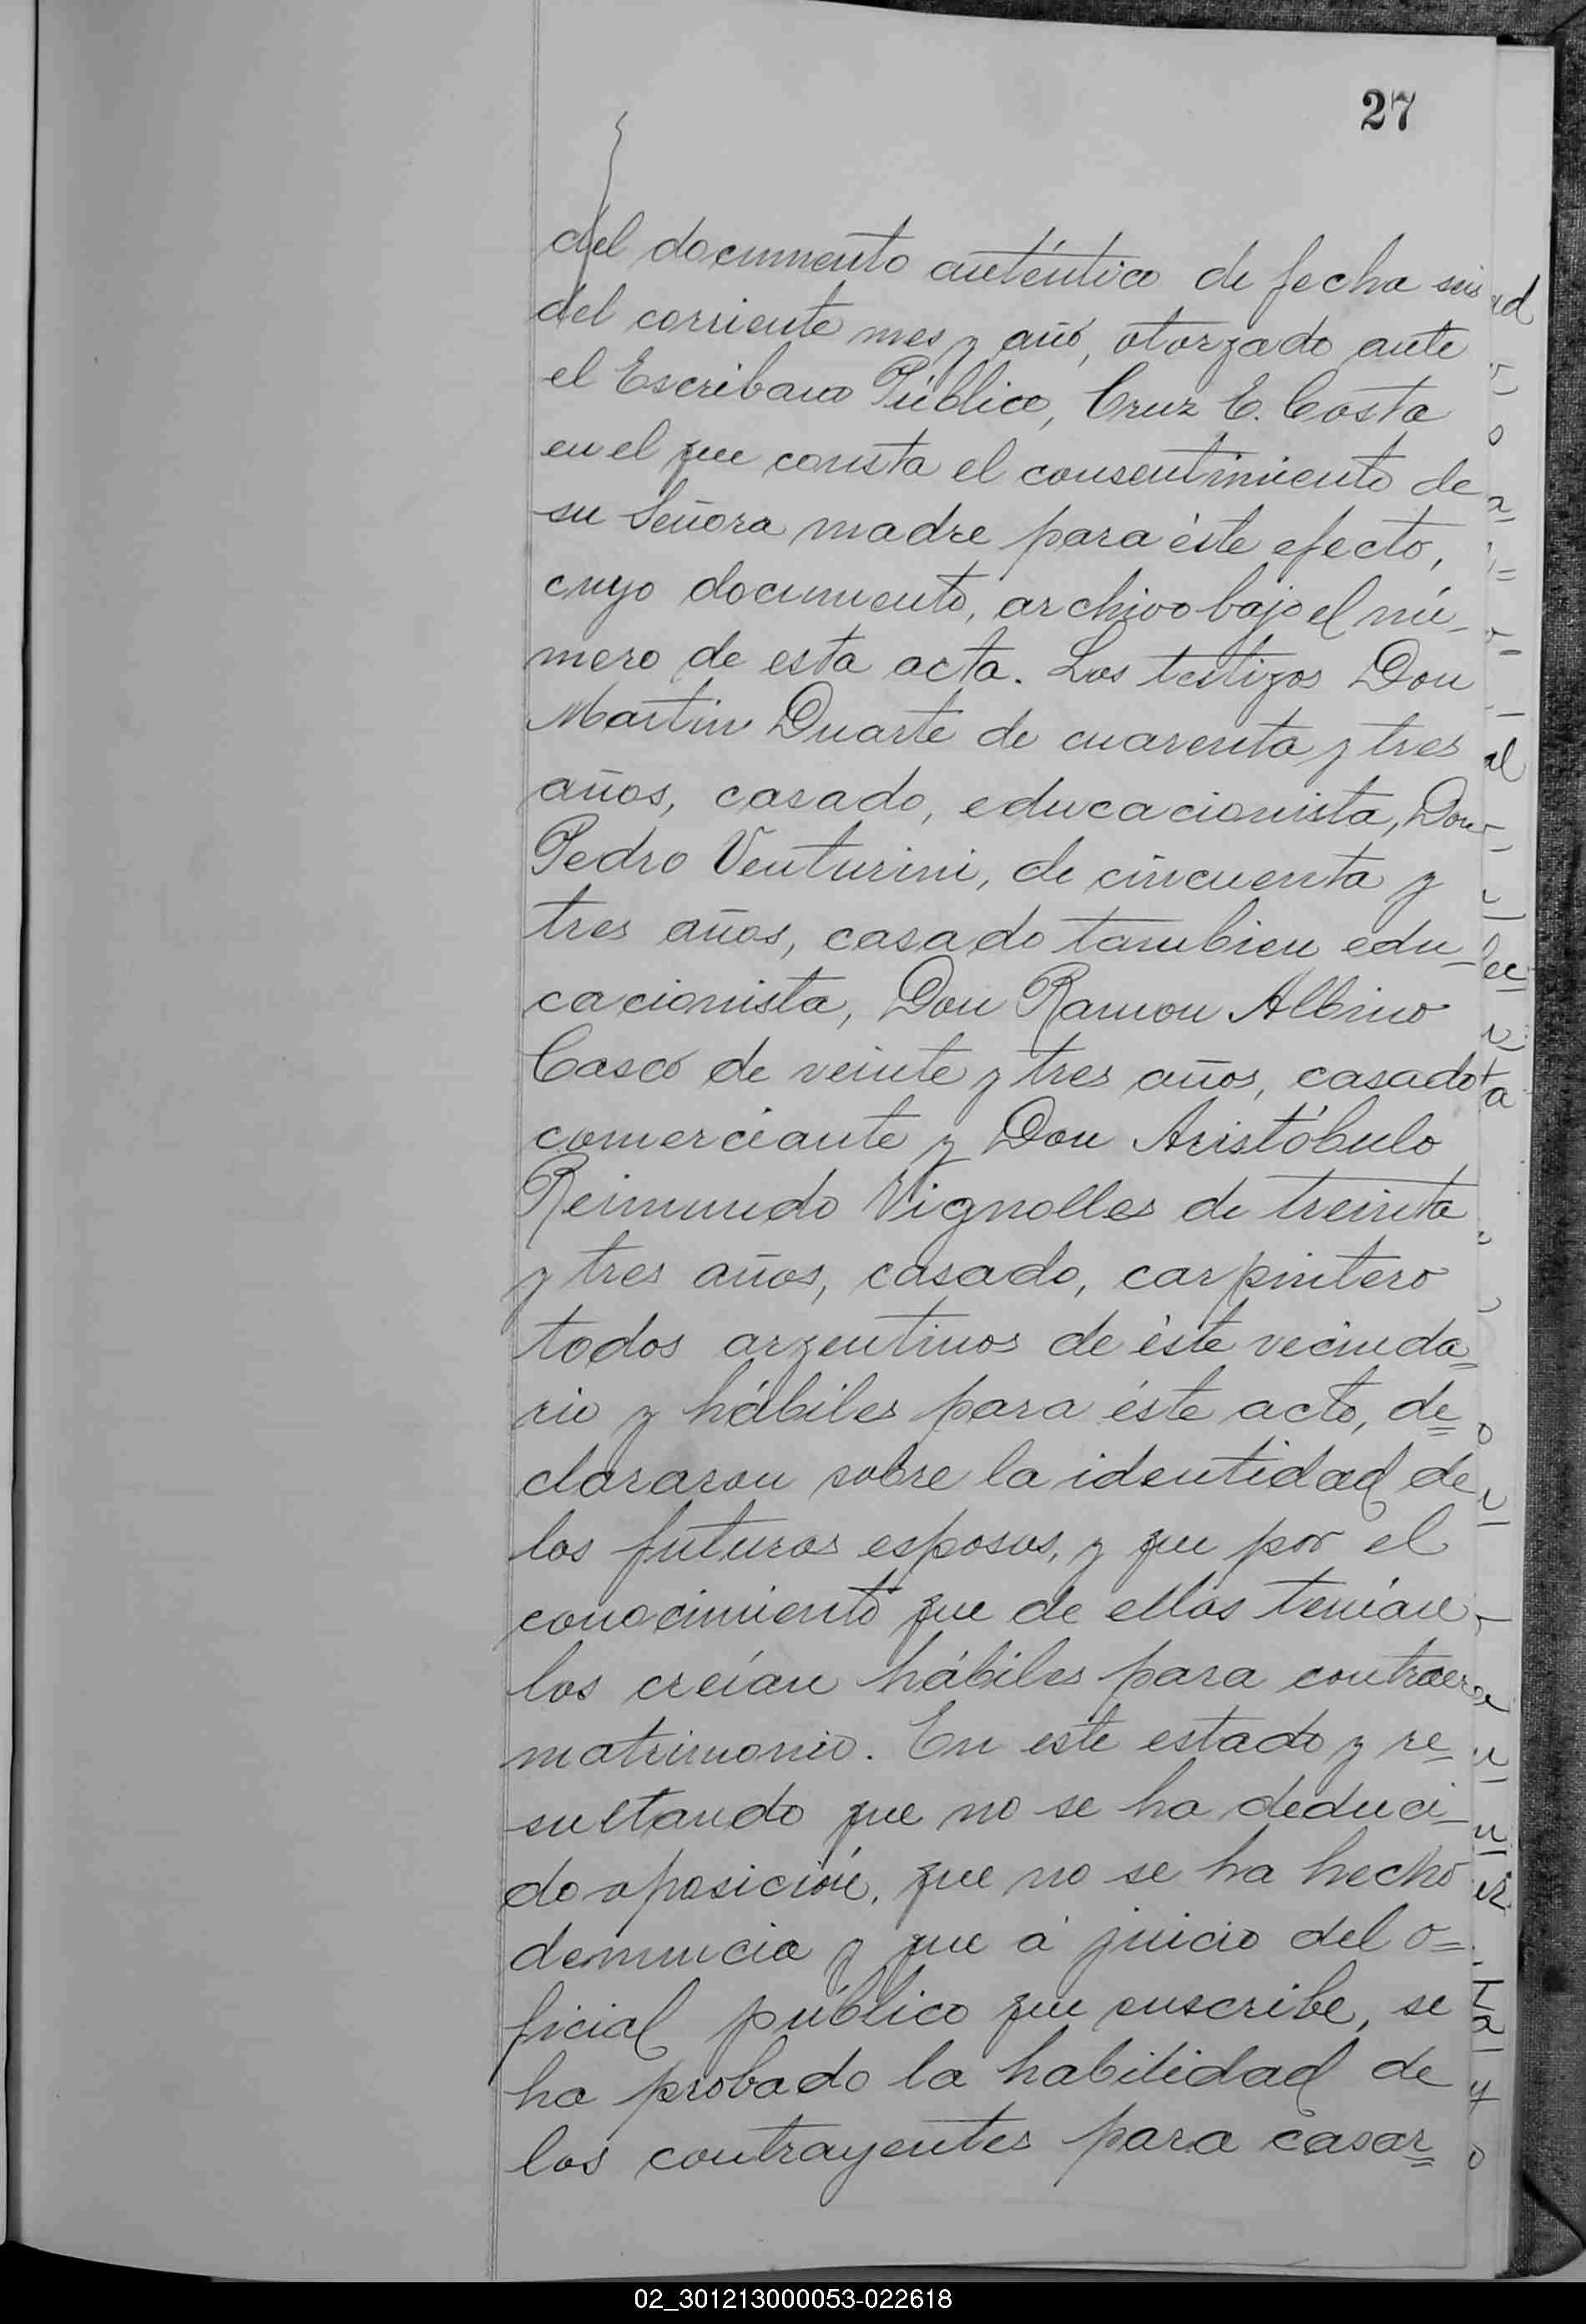 27
del documento auténtico de fecha seis
del corriente mes y año, otorgado ante
el Escribano Público, Cruz E. Costa
en el que consta el consentimiento de
su Señora madre para éste efecto,
cuyo documento, archivo bajo el nú-
mero de esta acta. Los testigos Don
Martin Duarte de cuarenta y tres
años, casado, educacionista, Don
Pedro Venturini, de cincuenta y
tres años, casado tambien edu-
cacionista, Don Ramon Albino
Casco de veinte y tres años, casado
comerciante y Don Aristóbulo
Reimundo Vignolles de treinta
y tres años, casado, carpintero
todos argentinos de éste vecinda=
rio y hábiles para éste acto, de=
clararon sobre la identidad de
los futuros esposos, y que por el
conocimiento que de ellos tenían
los creían hábiles para contraer
matrimonio. En este estado y re=
sultando que no se ha deduci-
do oposición, que no se ha hecho
denuncia y que á juicio del o=
ficial público que suscribe, se
ha probado la habilidad de
los contrayentes para casar=
02_301213000053-022618